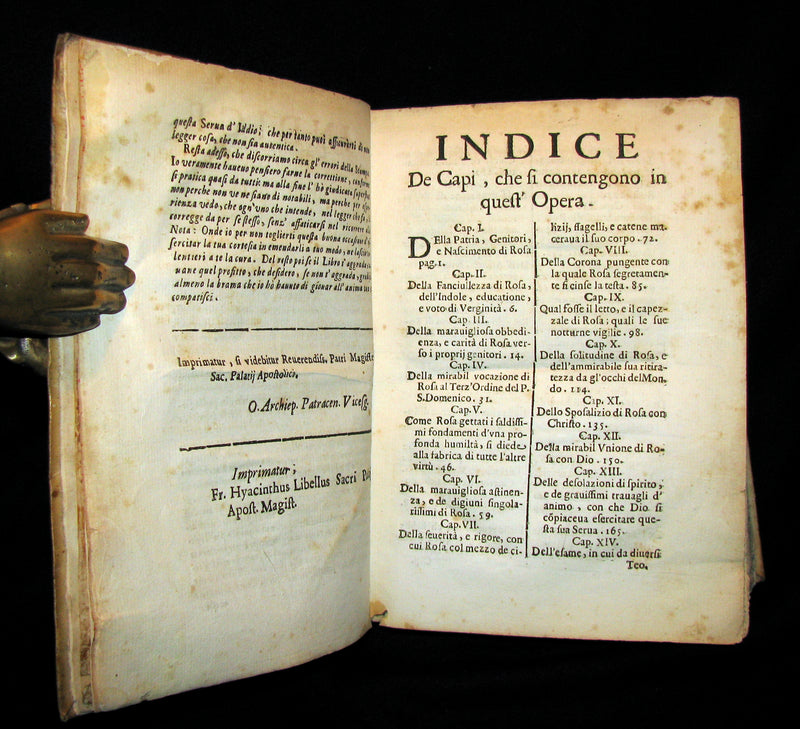 questa Serua d'Iddio; che per tanto puoi assicurarti di non
legger cosa, che non sia autentica.
Resta adesso, che discorriamo circa gl' errori della Stampa.
Io veramente haueuo pensiero farne la correttione, conforme
si pratica quasi da tutti: ma alla fine l' hò giudicata
non perche non ve ne siano di notabili, ma perche per
rienza vedo, che ogn'uno che intende, nel legger che fà,
corregge da per se stesso, senz' affaticarsi nel ricorere
Nota: Onde io per non toglierti questa buona occasione d'
sercitar la tua cortesia in emendarli a tuo modo, ne
lentieri a te la cura. Del resto poi se il Libro t'aggrada,
uane quel profitto, che desidero, se non t'aggrada,
almeno la brama che io hò hauuto di giouar all'anime
compatisci.
Imprimatur, si videbitur Reuerendiss. Patri Magistro
Sac. Palatij Apostolici.
O. Archiep. Patracen. Vicesg.
Imprimatur;
Fr. Hyacinthus Libellus Sacri
Apost. Magist.
INDICE
De Capi, che si contengono in
quest' Opera.
Cap. I.
DElla Patria, Genitori,
e Nascimento di Rosa
pag. 1.
Cap. II.
Della Fanciullezza di Rosa,
dell'Indole, educatione,
e voto di Verginità. 6.
Cap. III.
Della marauigliosa obbedi-
enza, e carità di Rosa ver-
so i proprij genitori. 14.
Cap. IV.
Della mirabil vocazione di
Rosa al Terz'Ordine del P.
S. Domenico. 31.
Cap. V.
Come Rosa gettati i saldissi-
mi fondamenti d'vna pro-
fonda humiltà, si diede
alla fabrica di tutte l'altre
virtù. 46.
Cap. VI.
Della marauigliosa astinen-
za, e de digiuni singola-
rissimi di Rosa. 59.
Cap. VII.
Della seuerità, e rigore, con
cui Rosa col mezzo de ci-
lizij, flagelli, e catene ma-
ceraua il suo corpo. 72.
Cap. VIII.
Della Corona pungente con
la quale Rosa segretamen-
te si cinse la testa. 85.
Cap. IX.
Qual fosse il letto, e il capez-
zale di Rosa; quali le sue
notturne vigilie. 98.
Cap. X.
Della solitudine di Rosa, e
dell'ammirabile sua ritira-
tezza da gl'occhi del Mon-
do. 114.
Cap. XI.
Dello Sposalizio di Rosa con
Christo. 135.
Cap. XII.
Della mirabil Vnione di Ro-
sa con Dio. 150.
Cap. XIII.
Delle desolazioni di spirito,
e de grauissimi trauagli d'
animo, con che Dio si
cõpiaceua esercitare que-
sta sua Serua. 165.
Cap. XIV.
Dell'esame, in cui da diuersi
Teo.